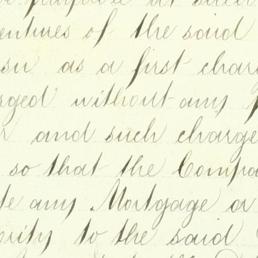 entures of the said
su as a first char
rged without any
and such charge
so that the Compa
te any Mortgage or
ority to the said